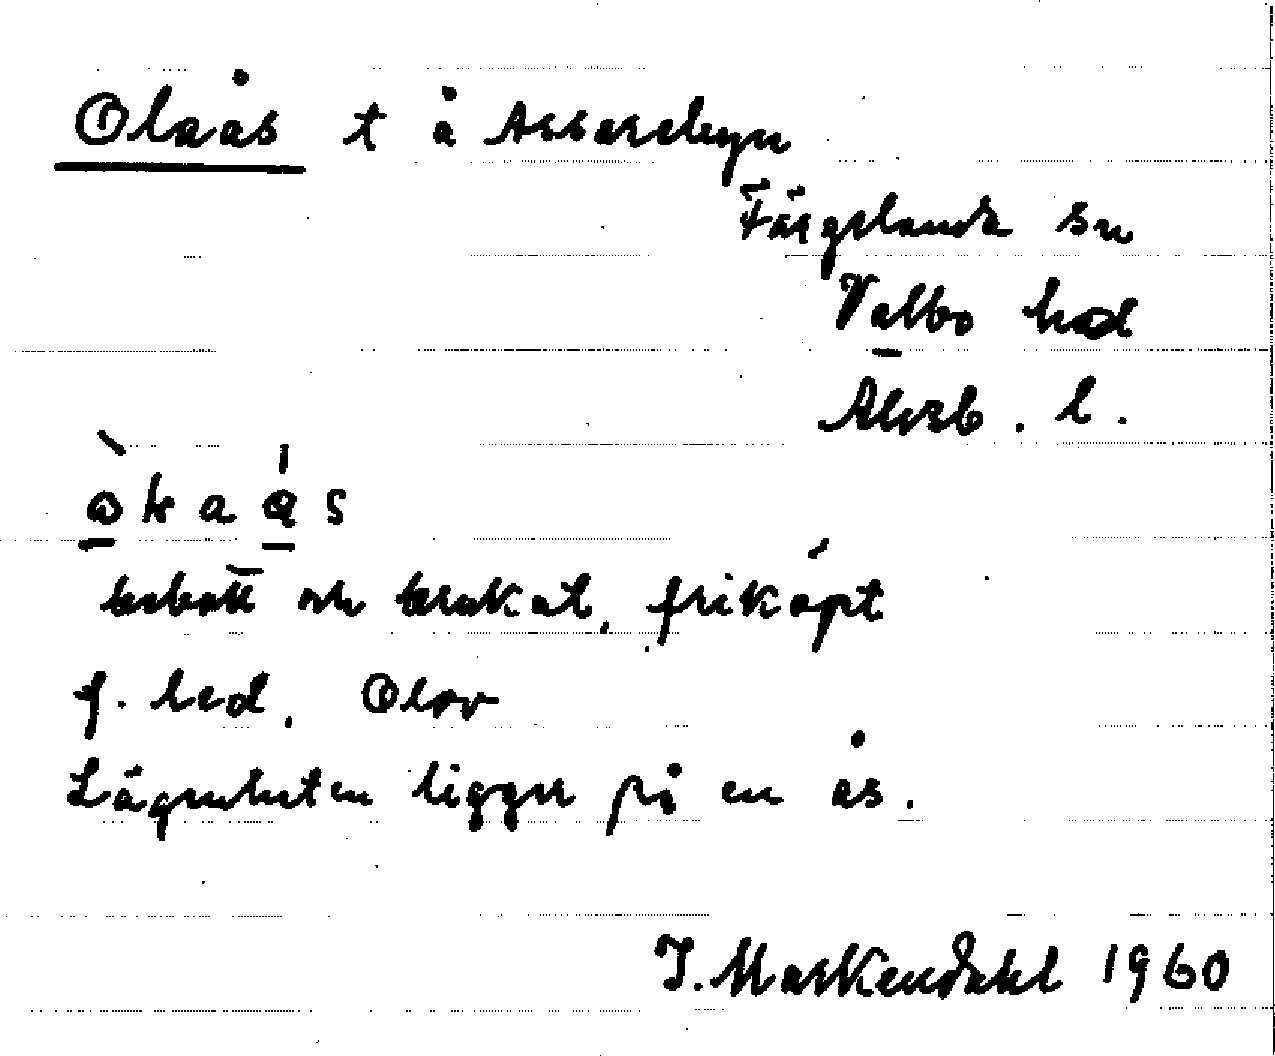 Olaås t å Assarebyn
Färgelanda sn
Valbo hd
Älvsb. l.
bebott och brukat, friköpt
f. led, Olov
Lägenheten ligger på en ås.
J. Markendahl 1960